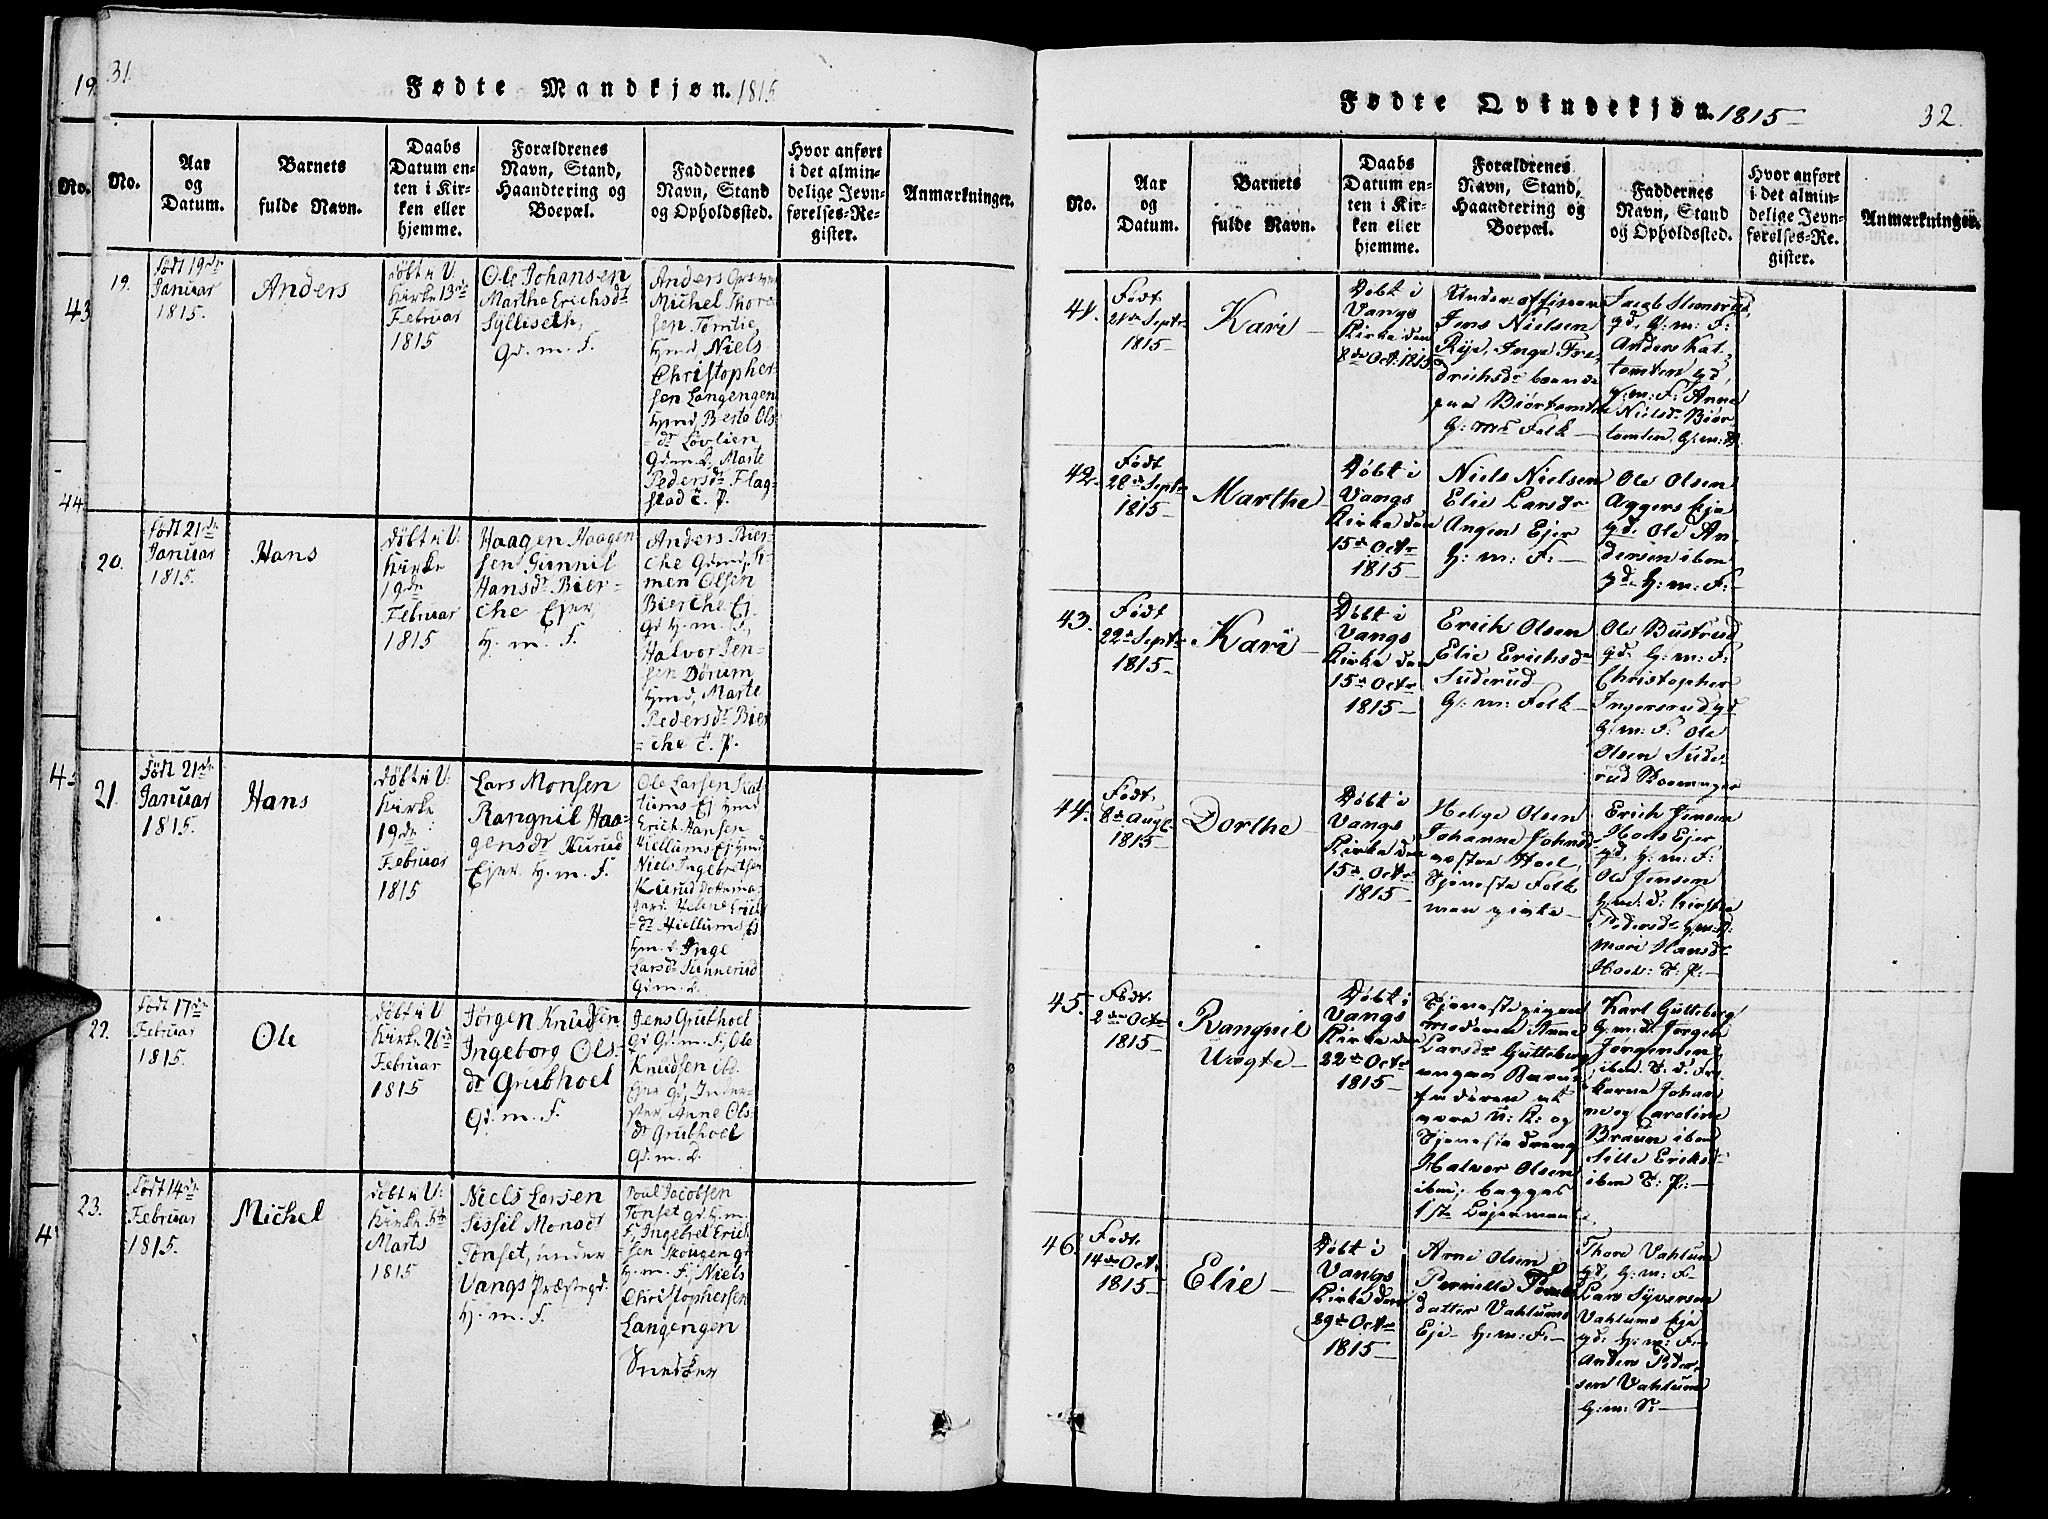 31.
Fødte Mandkjøn. 1815
No.
Aar
og
Datum.
Barnets
fulde Navn.
Daabs
Datum en-
ten i Kir-
ken eller
hjemme.
Forældrenes
Navn, Stand,
Haandtering og
Boepæl.
Faddernes
Navn, Stand
og Opholdssted.
Hvor anført
i det almin-
delige Jevn-
førelses-Re-
gister.
Anmærkninger.
19.
Født 19de
Januar
1815.
Anders
døbt i V:
Kirke 13de
Februar
1815
Ole Johansen
Marthe Erichsdr
Sylliseth,
Gd. m. F.
Anders
Michel Thore
sen Tomtie
Hmd, Niels
Christopher-
sen Langengen
Hmd, Berte Ols-
dr Lovlien
Gdm D, Marte
Pedersdr Flag-
stad E. P.
20.
Født 21de
Januar
1815.
Hans
døbt i V:
Kirke
19de
Februar
1815
Haagen Haagen
sen Gunnil
Hansdr Bier-
che Ejer
H. m. F.
Anders Bier-
che Gdmd,
men Olsen
Bierche Ej.
gd H. m. F,
Halvor Jen-
sen Dørum
Hmd, Marte
Pedersdr Bier
che E. P.
21.
Født 21de
Januar
1815.
Hans
døbt i V:
Kirke
19de
Februar
1815
Lars Monsen
Rangnil Haa-
gensdr Kurud
Ejer H. m. F.
Ole Larsen
Ej Hmd
Erich Hansen
Hiellums Ej Hmd
Niels Ingebretsen
Kurud
Helene Erichs
dr Hiellums Ej
Hm. D Inge
Larsdr Sunnerud
Gdm. D.
22.
Født 17de
Februar
1815.
Ole
døbt i V
Kirke 26de
Februar
1815
Jørgen Knudsen
Ingeborg Ols-
dr Grubhoel
Gd. m. F.
Jens Grubhoel
Gd. m. F, Ole
Knudsen ibd.
Anne Ols-
dr Grubhoel
Gd. m. D.
23.
Født 14de
Februar
1815.
Michel
døbt i V:
Kirke 5te
Marts
1815
Niels Larsen
Sissil Monsdr
Tønset, under
Vangs Præstegd.
H. m. F.
Poul Jacobsen
Tønset gd H. m.
F, Ingebret Erich
sen Skougen gd
H. m. F., Niels
Christophersen
Langengen
Snedker
Fødte Qvindekjøn. 1815
32.
No.
Aar
og
Datum.
Barnets
fulde Navn.
Daabs
Datum en-
ten i Kir-
ken eller
hjemme.
Forældrenes
Navn, Stand,
Haandtering og
Boepæl.
Faddernes
Navn, Stand
og Opholdssted.
Hvor anført
i det almin-
delige Jevn-
førelses-Re-
gister.
Anmærkninger.
41.
Født
21de Septr
1815
Kari
Døbt i
Vangs
Kirke den
8de Oct. 1815
Under officeer
Jens Nielsen
Rye, Inge Fre-
drichsdr boende
paa Biørtomten
G: ms Folk
Jacob
gd. G: m: F:
Anders Kat-
tomten gd,
H: m: F: Anne
Nielsdr Biør-
tomten G: m: D.
42.
Født
28de Septr
1815
Marthe
Døbt i
Vangs
Kirke den
15de Octr
1815
Niels Nielsen
Elie Larsdr
Angen Ejer
H: m: F:
Ole Olsen
Aggers Eje
gd. Ole An-
dersen ibm
gd. H: m: F:
43.
Født
22de Septr
1815
Kari
Døbt i
Vangs
Kirke den
15de Octr
1815
Erich Olsen
Elie Erichsdr
Suderud
G: m: Folk
Ole Bustrud
gd. G: m: F:
Christopher
Ingersrud gd
G: m: F: Ole
Olsen Sude-
rud
44.
Født
8de Augt
1815
Dorthe
Døbt i
Vangs
Kirke den
15de Octr
1815
Helge Olsen
Johanne Johnsdr
Hoel
Tjeneste Folk
men givte
Erich Jensen
Hoels Ejer
gd. H: m: F:
Ole Jensen
H: m: d: Kirstie
Pedersdr H: m: D:
Mari Hansdr
Hoel: T: P:
45.
Født
2den Octr
1815
Rangnil
Uægte
Døbt i
Vangs
Kirke den
22de Octr
1815
Tjenestepigen
moderen Anne
Larsdr Gutteberg
angav Barne-
faderen at
være U: K: og
Tjeneste dreng
Halvor Olsen
ibm, begges
1ste Lejermaal
Karl Gutteberg
G: m: d: Jørgen
Jørgensen
ibm T: d: Frø-
kerne Johan-
ne og Caroline
Braun ibm
Sille Ericksdr
ibm T: P:
46.
Født
14de Oct.
1815
Elie
Døbt i
Vangs
Kirke den
29de Octr
1815
Arne Olsen
Pernille Povels
datter Vahlums
Eje H: m: F:
Thore Vahlum
gd, G: m: F:
Lars Syversen
Vahlums Eje
gd: H: m: F:
Anders Peder-
sen Vahlum
G: m: S: